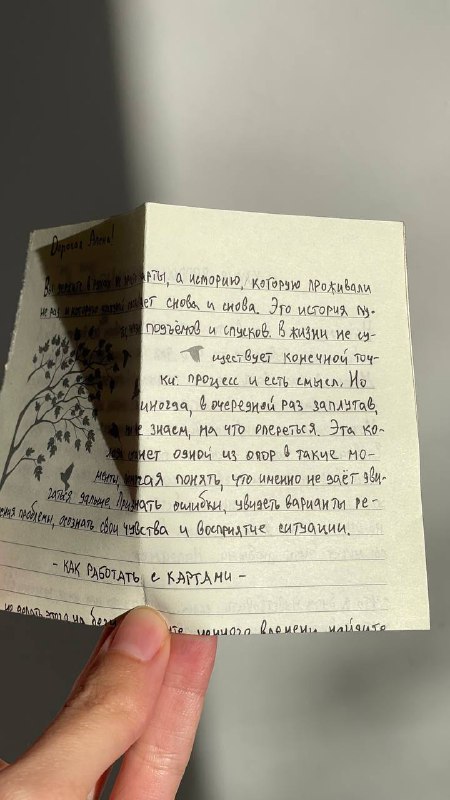 Дорогая Алена!
Вы держите в руках не карты, а историю, которую проживали
не раз и которую каждый проживает снова и снова. Это история пу-
ти, подъёмов и спусков. В жизни не су-
ществует конечной точ-
ки. Процесс и есть смысл. Но
иногда, в очередной раз заплутав,
не знаем, на что опереться. Эта ко-
лода станет одной из опор в такие мо-
менты, помогая понять, что именно не даёт дви-
гаться дальше. Признать ошибки, увидеть варианты ре-
шения проблемы, осознать свои чувства и восприятие ситуации.
- КАК РАБОТАТЬ С КАРТАМИ -
немного времени найдите